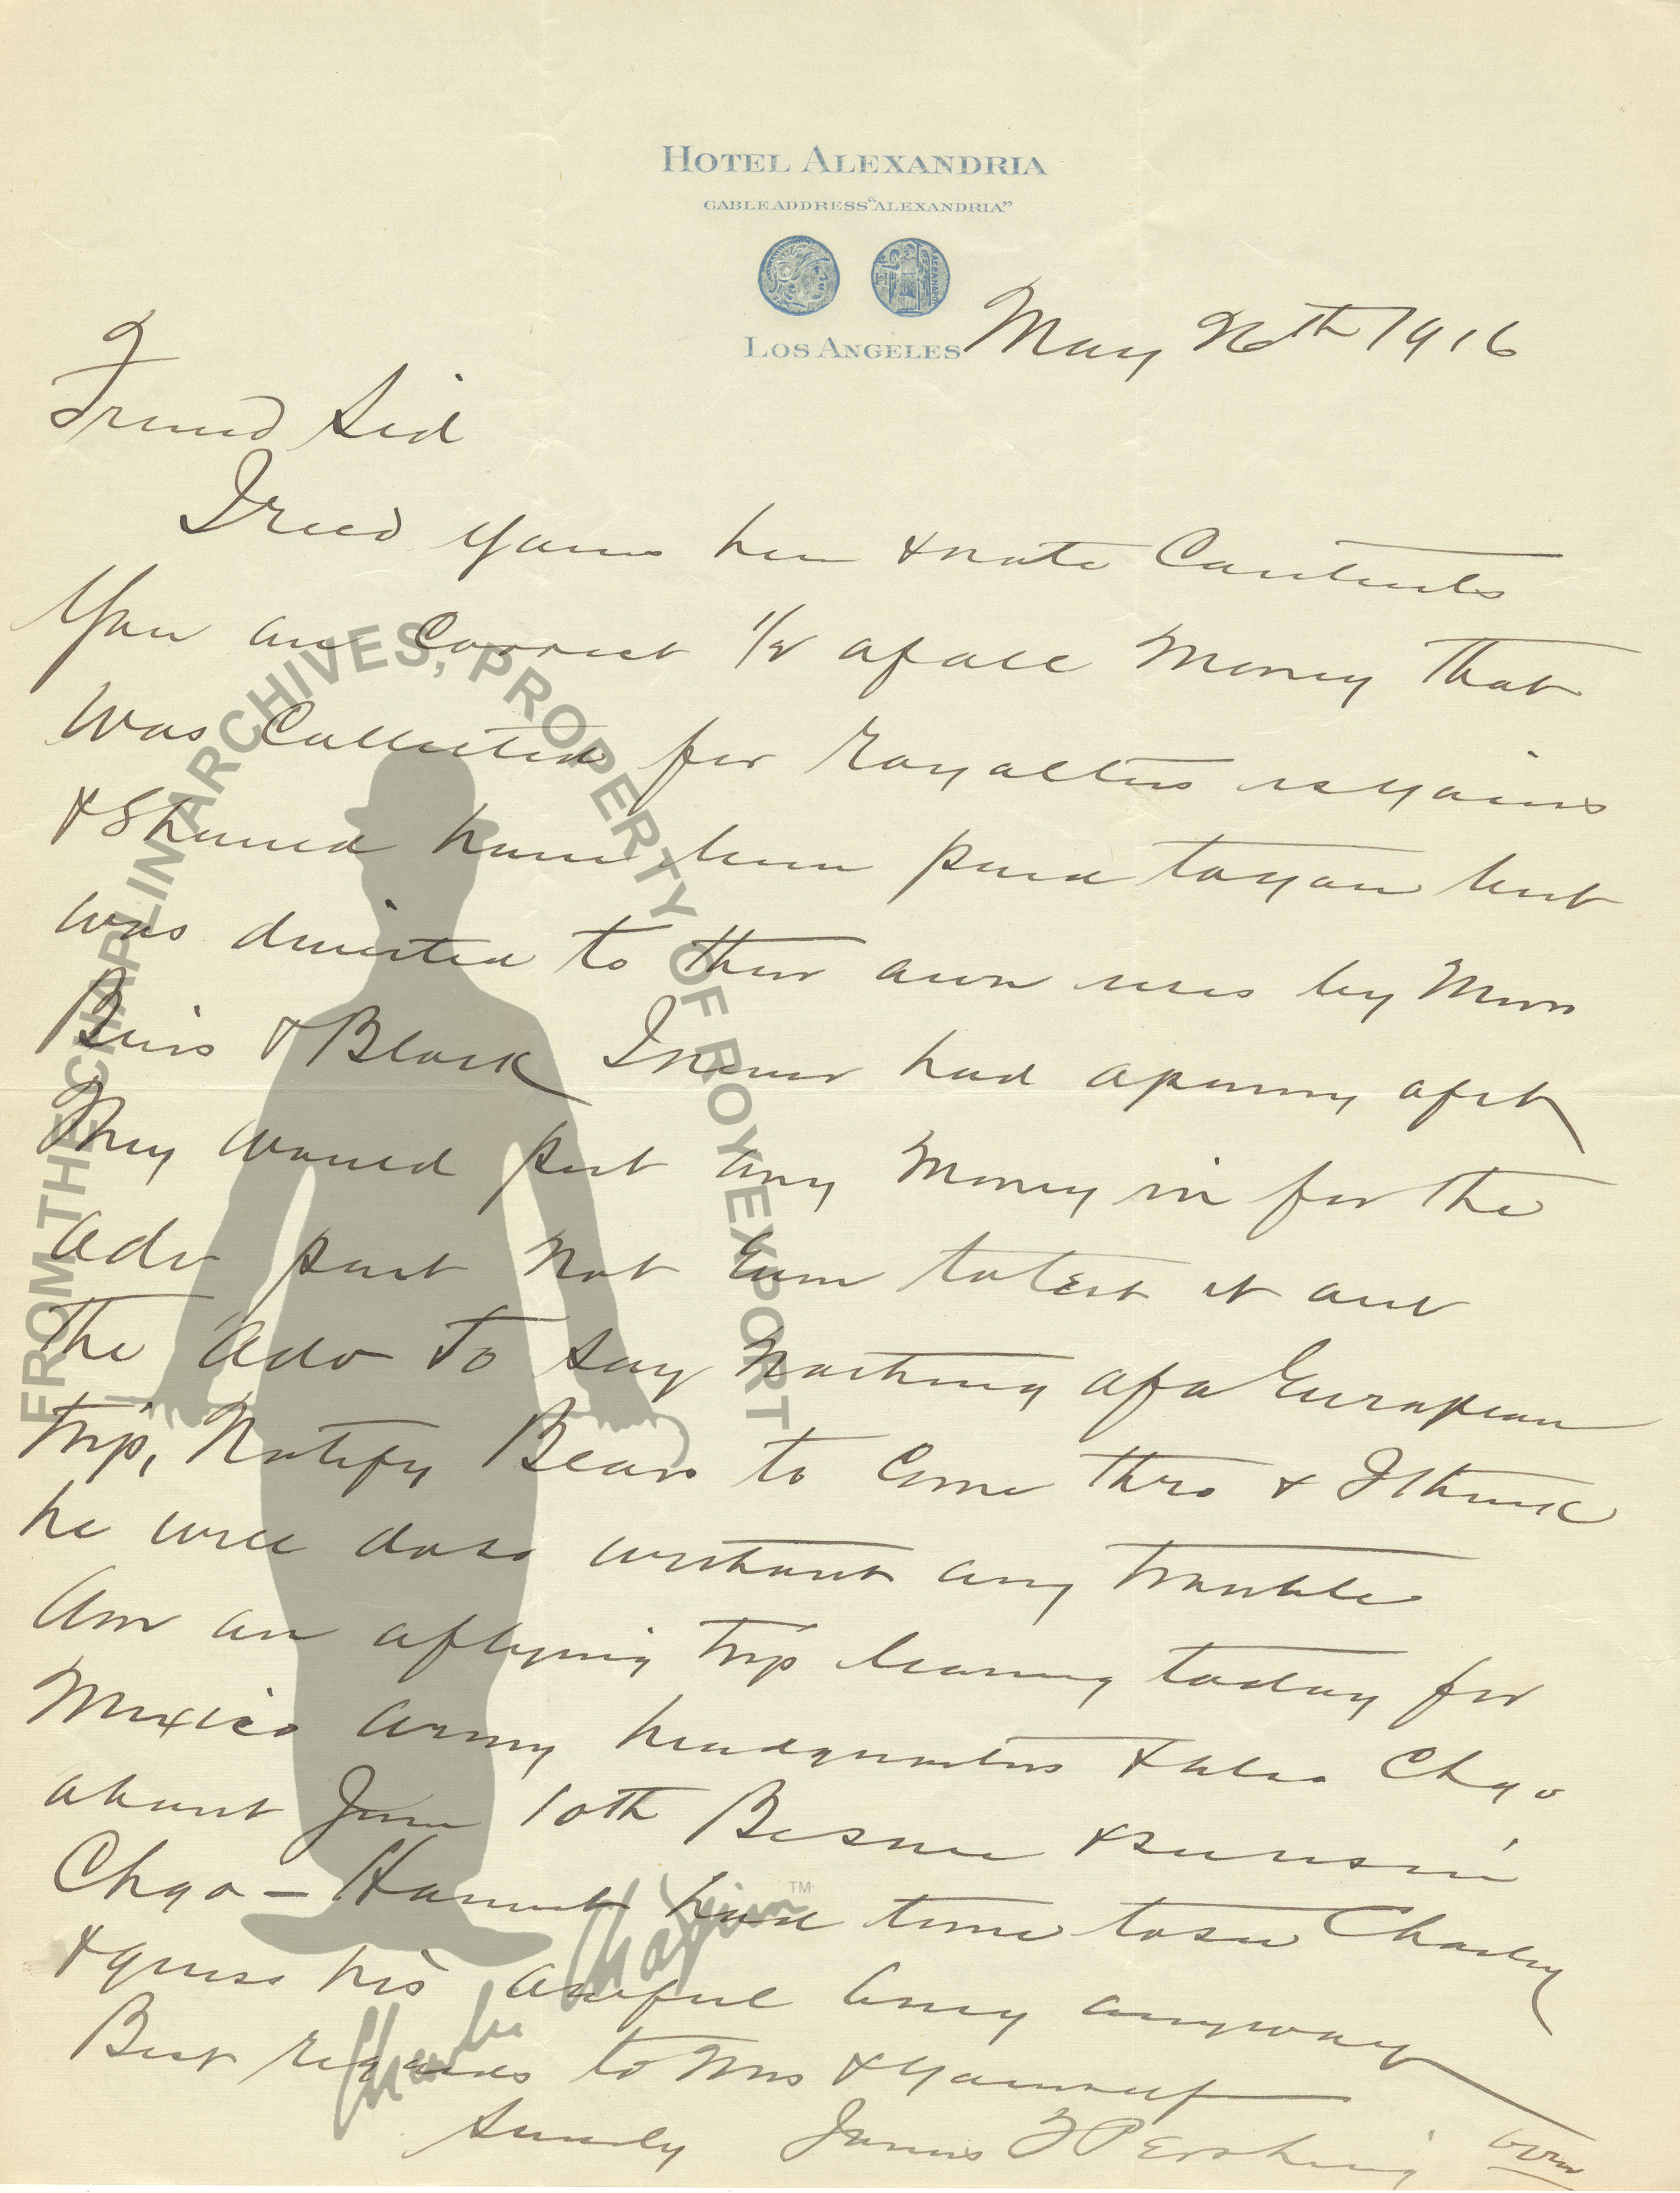 HOTEL ALEXANDRIA
CABLE ADDRESS "ALEXANDRIA"
LOS ANGELES
May 26th 1916
Friend Sid
I recd yours here & note Contents
You are Correct 1/2 of all Money That
Was Collected for royalties is yours
& Should have been paid to you but
was diverted to their own uses by Mssrs
& Black I never had a penny of it
They would put any Money in for the
Adv part Not Even to test it out
The Adv To say Nothing of a European
trip, Notify to Come thro & I think
he will do so without any trouble
Am on a flying trip leaving today for
Mexico Army headquarters & also Chgo
about June 10th Besure & run in
Chgo – Havent had time to see Charley
& guess his awful busy anyway
Best regards to Mrs & Yourself
James Pershing
FROM THE CHAPLIN ARCHIVES, PROPERTY OF ROY EXPORT
Charlie Chaplin™